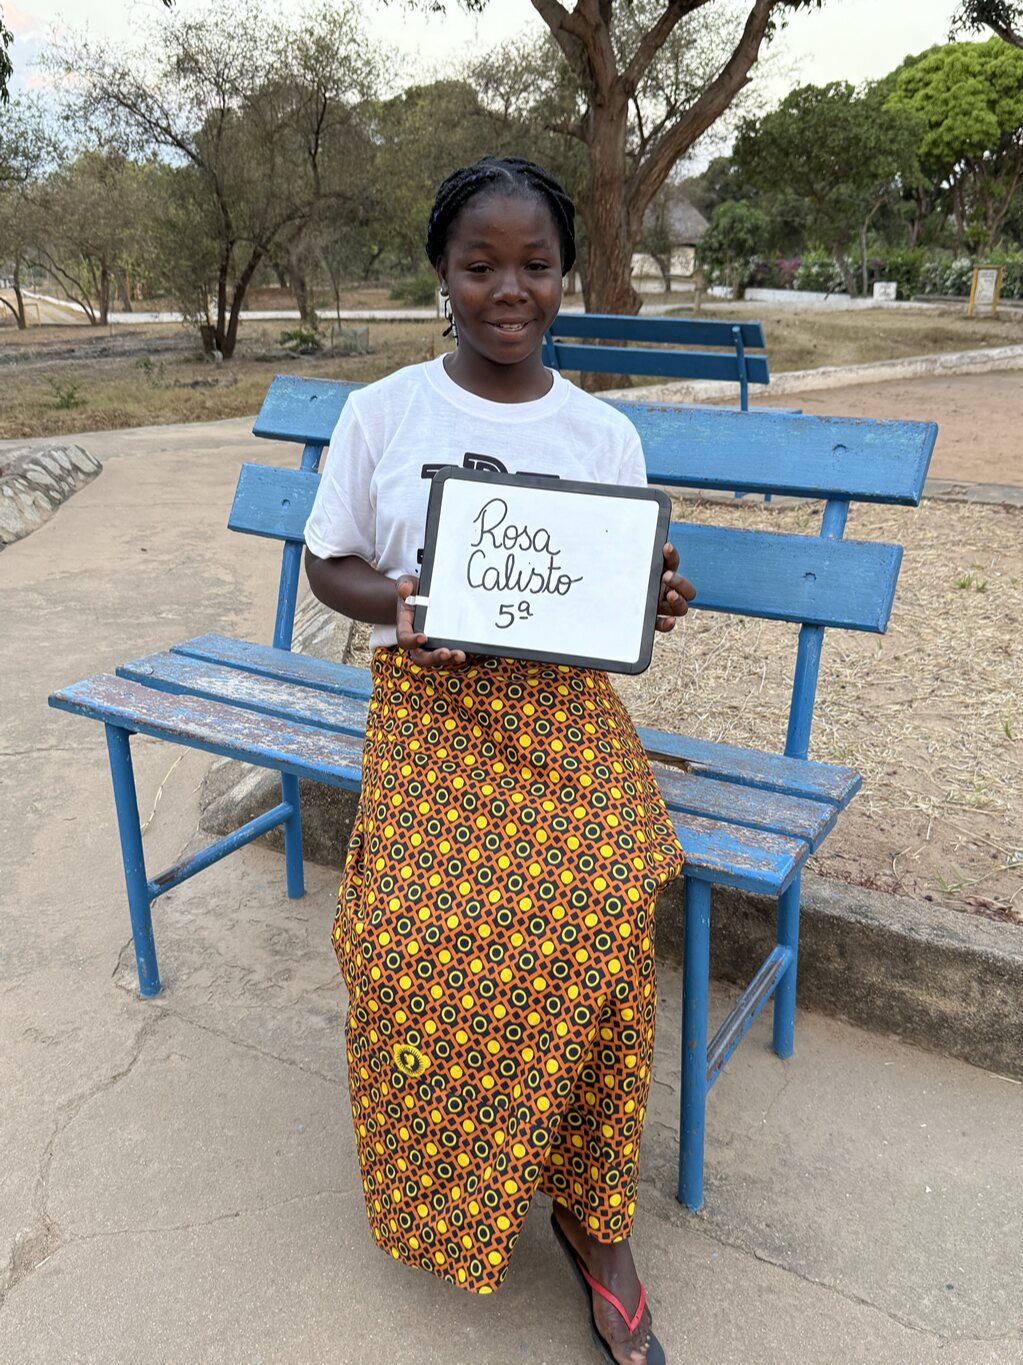 Rosa
Calisto
5ª